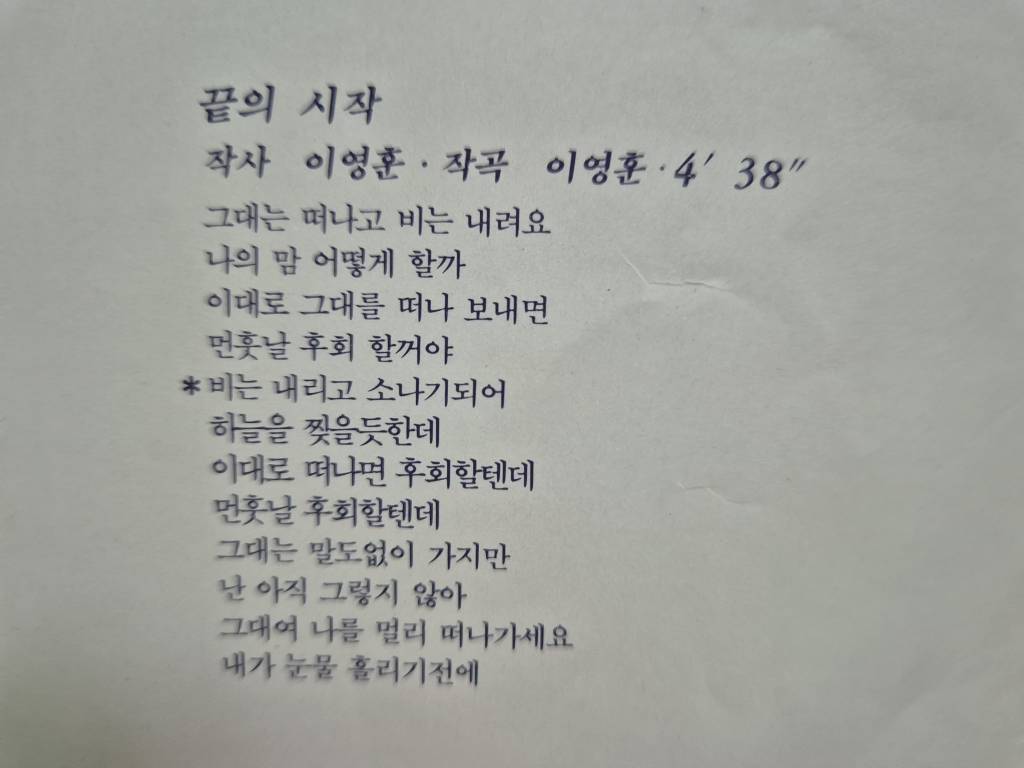 끝의 시작
작사 이영훈 · 작곡 이영훈 · 4′ 38″
그대는 떠나고 비는 내려요
나의 맘 어떻게 할까
이대로 그대를 떠나 보내면
먼훗날 후회 할꺼야
* 비는 내리고 소나기되어
하늘을 찢을듯한데
이대로 떠나면 후회할텐데
먼훗날 후회할텐데
그대는 말도없이 가지만
난 아직 그렇지 않아
그대여 나를 멀리 떠나가세요
내가 눈물 흘리기전에